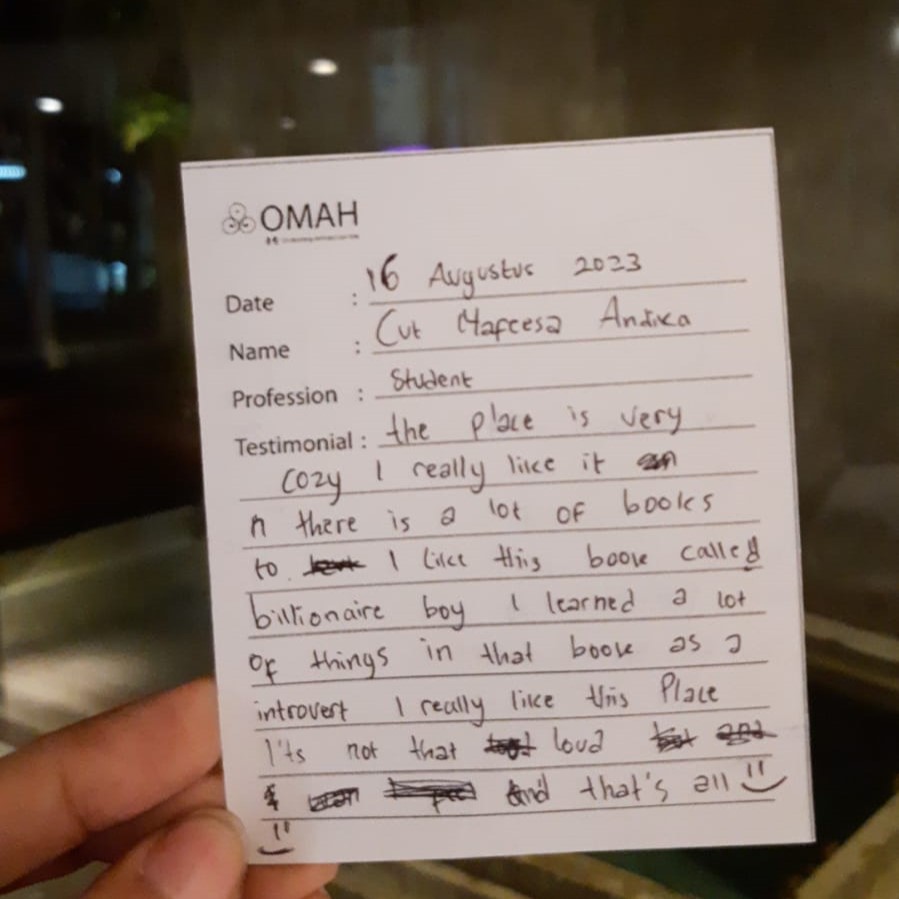 OMAH
Date : 16 Augustus 2023
Name : Cut Andika
Profession : Student
Testimonial : the place is very
cozy I really like it
n there is a lot of books
to I like this book called
billionaire boy I learned a lot
of things in that book as a
introvert I really like this Place
I'ts not that loud
And that's all